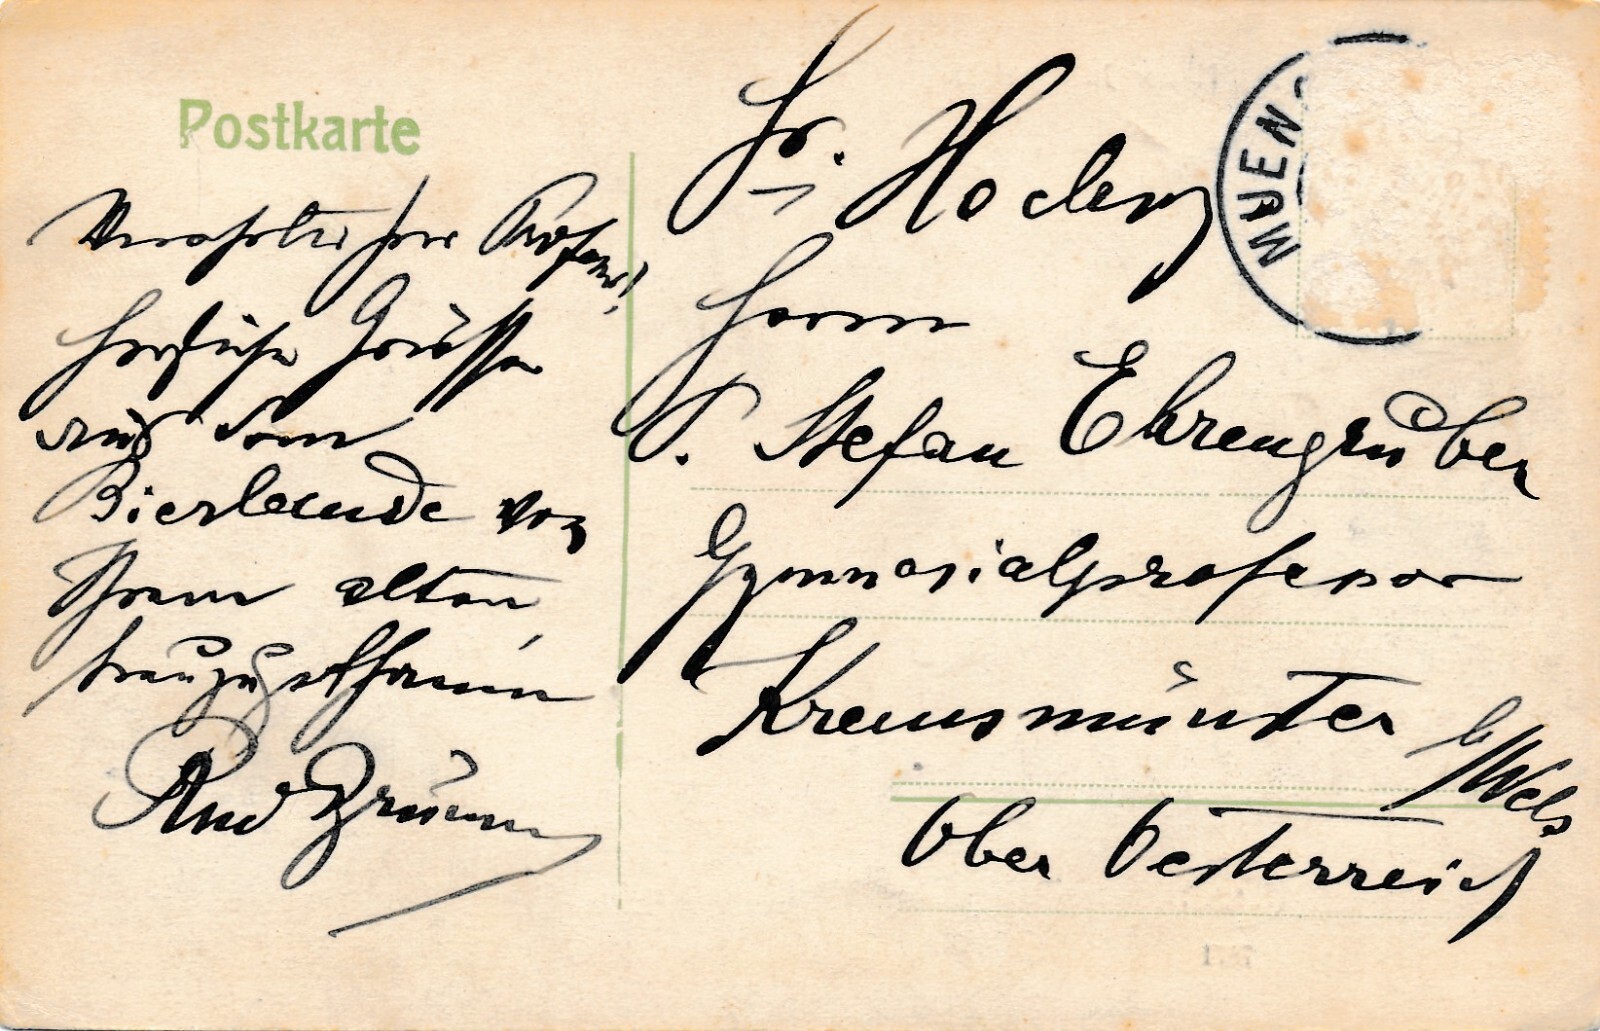 Postkarte
Verehrter Herr Professor!
Herzliche Grüsse
aus dem
Bierlande von
Ihrem alten
Rud
Sr. Hochw
Herrn
P. Stefan Ehrengruber
Gymnasialprofessor
Kremsmünster
b/Wels
Ober Oesterreich
MUEN